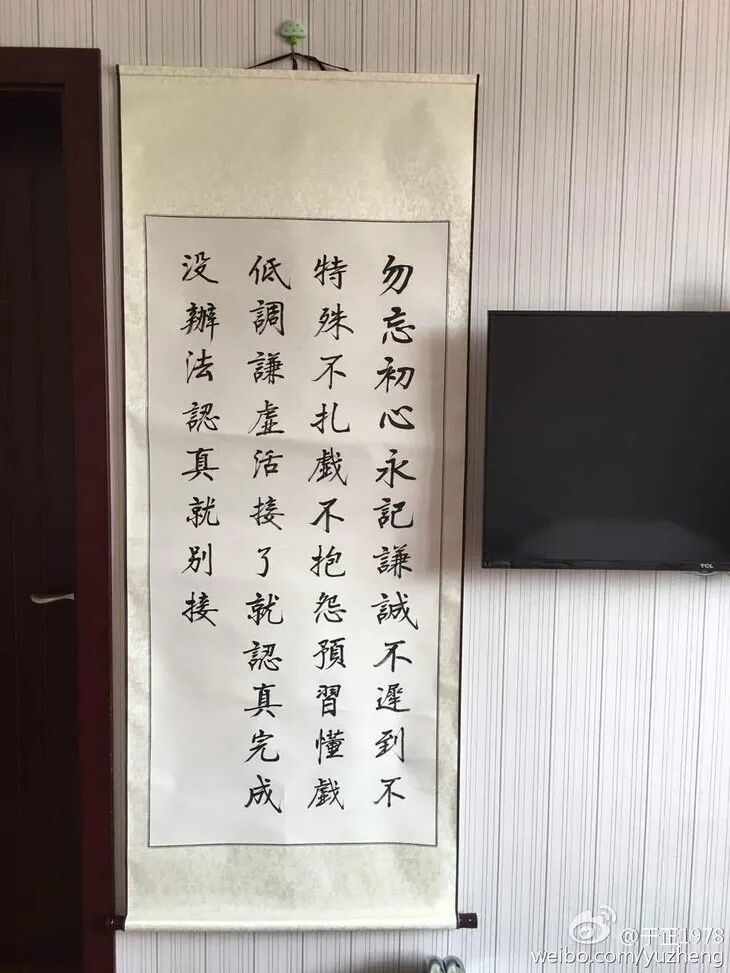 勿忘初心永記謙誠不遲到不
特殊不扎戲不抱怨預習懂戲
低調謙虛活接了就認真完成
没辦法認真就別接
TCL
@于正1978
weibo.com/yuzheng